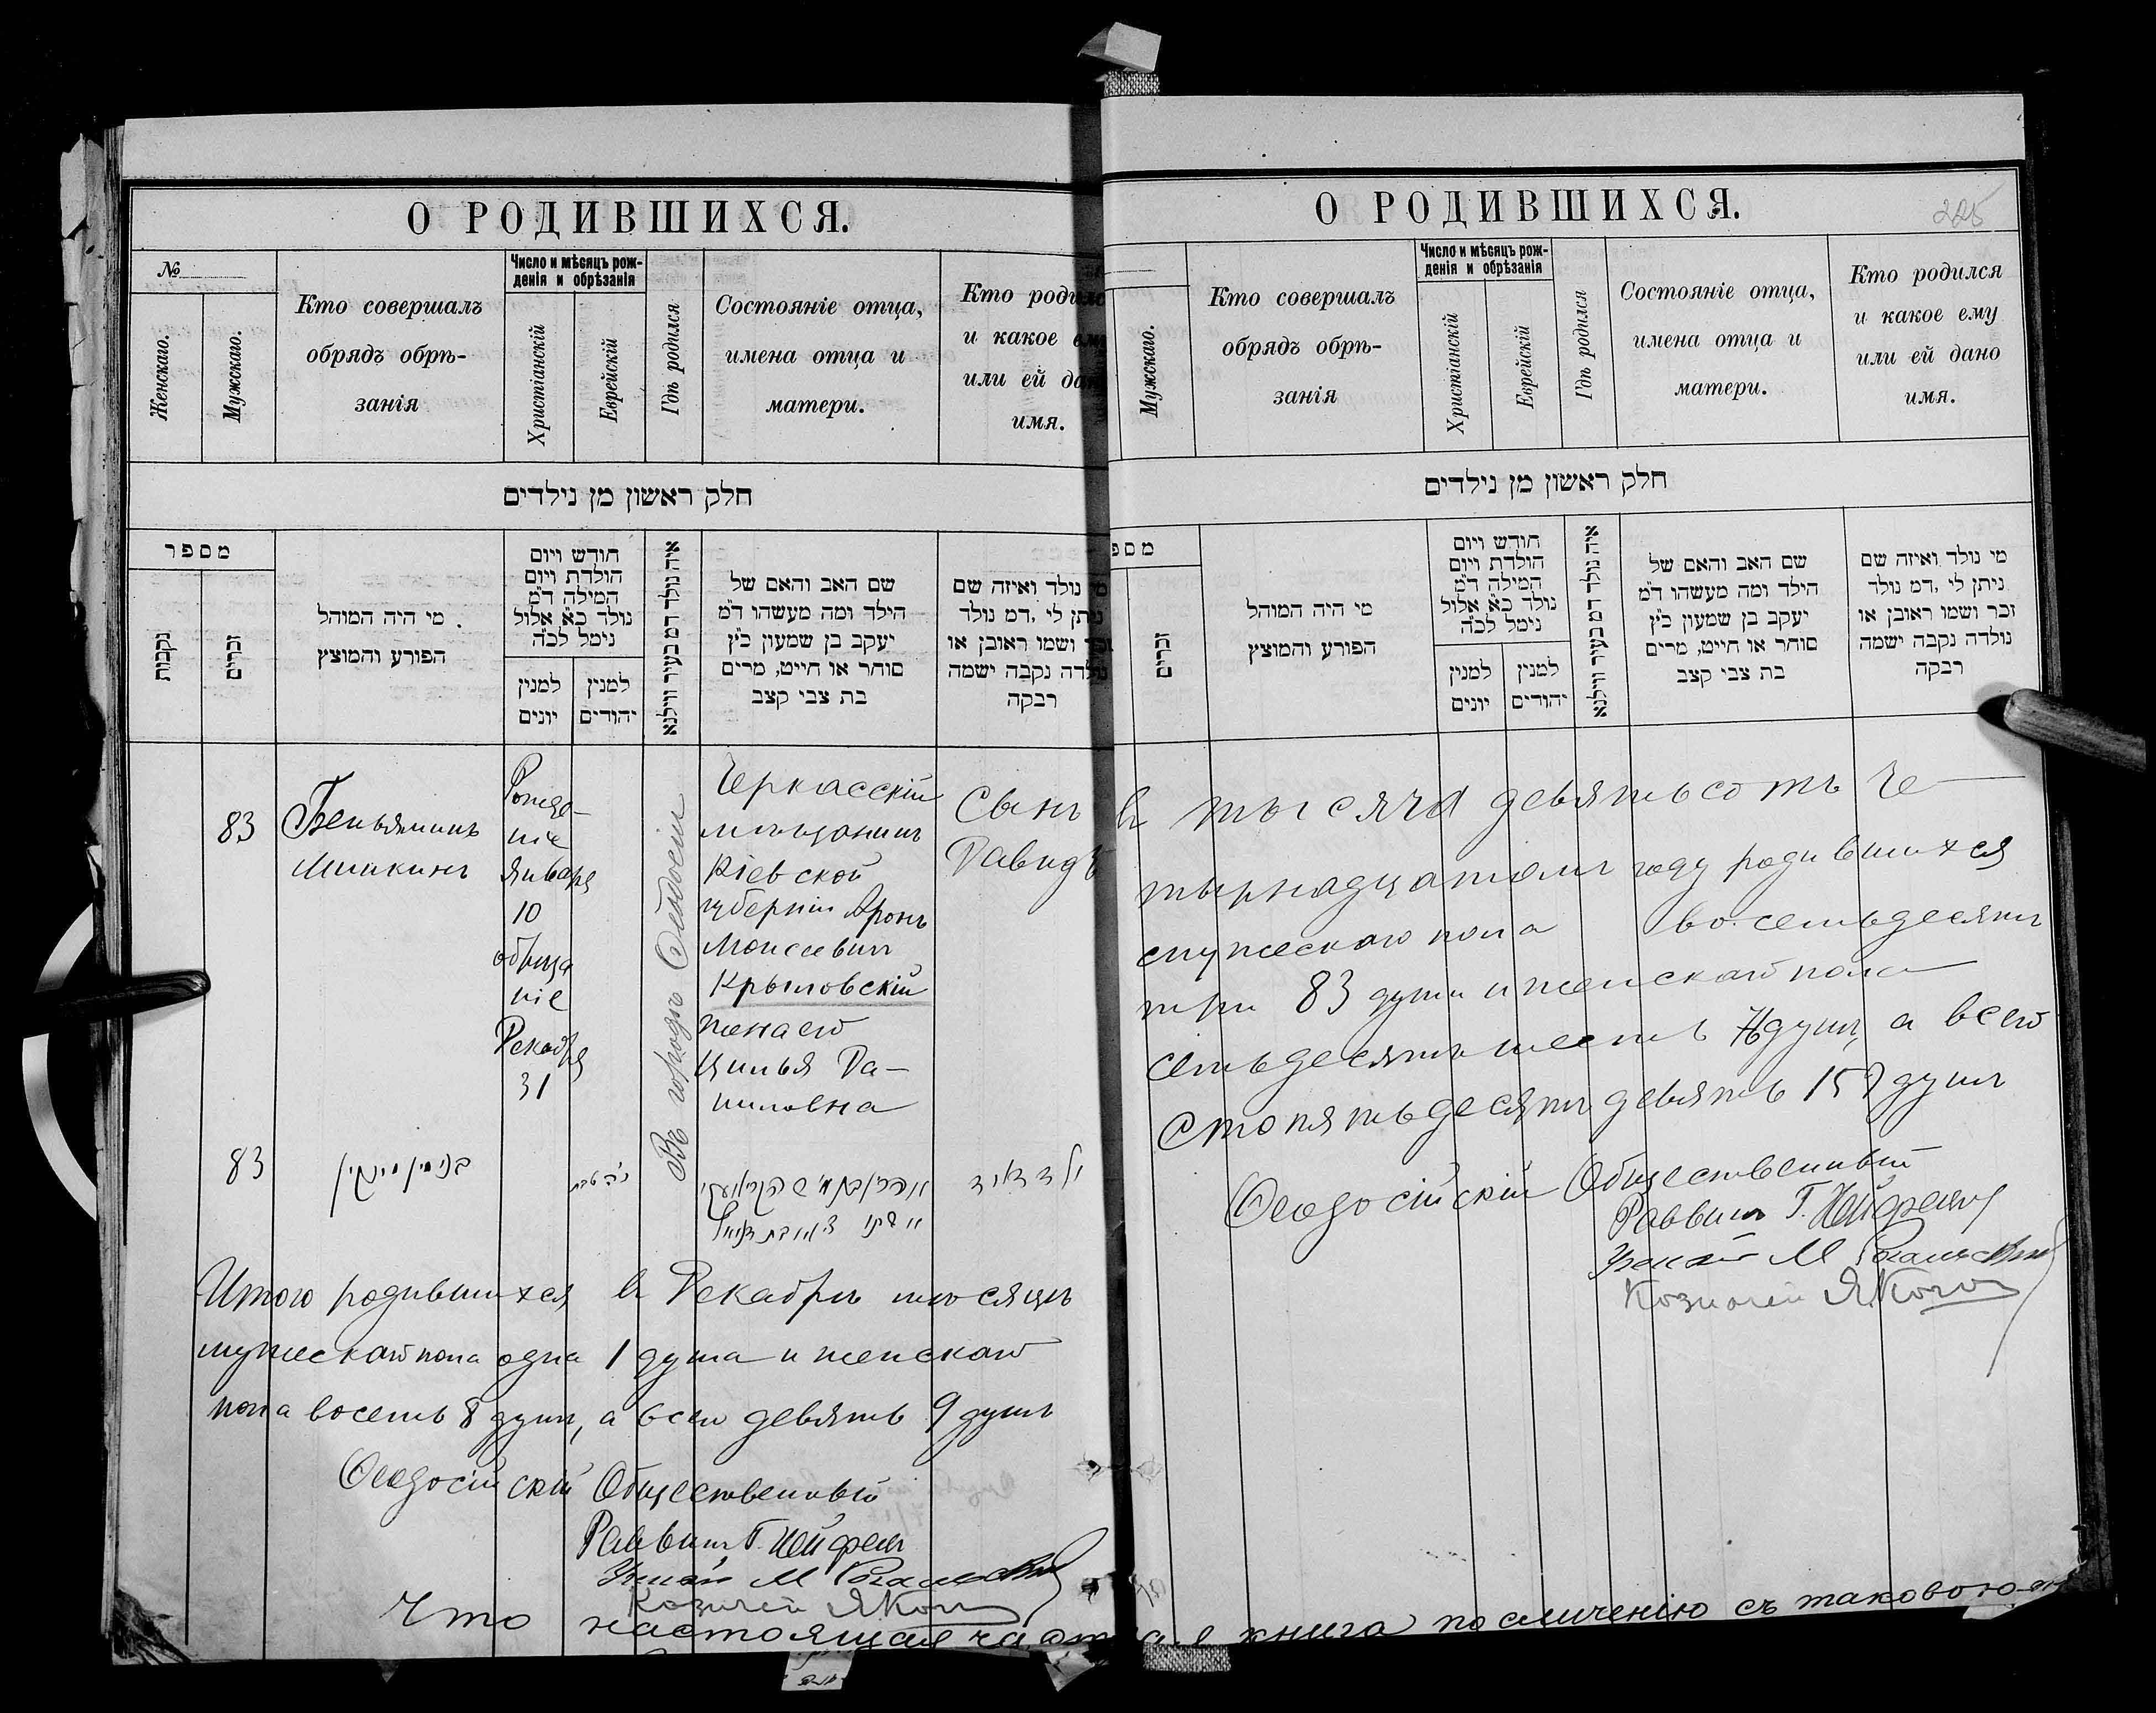 О РОДИВШИХСЯ.
№
Женскаго.
Мужскаго.
Кто совершалъ
обрядъ обрѣ-
занія
Число и мѣсяцъ рож-
денія и обрѣзанія
Христіанскій
Еврейскій
Гдѣ родился
Состояніе отца,
имена отца и
матери.
Кто родился
и какое ему
или ей дано
имя.
חלק ראשון מן נילדים
מספר
נקבות
זכרים
מי היה המוהל
הפורע והמוצץ
חודש ויום
הולדת ויום
המילה ד״מ
נולד כ״א אלול
נימל לכ״ה
למנין
יונים
למנין
יהודים
איה נולד דמ בעיר ווילנא
שם האב והאם של
הילד ומה מעשהו ד״מ
יעקב בן שמעון כ״ץ
סוחר או חייט, מרים
בת צבי קצב
מי נולד ואיזה שם
ניתן לי ,דמ נולד
זכר ושמו ראובן או
נולדה נקבה ישמה
רבקה
83
Беньяминъ
Мишкинъ
Рожде-
ніе
Января
10
обрѣза
ніе
Декабря
31
Въ городѣ Ѳеодосіи
Черкасскій
мѣщанинъ
Кіевской
губерніи Аронъ
Моисеевичъ
Крыловскій
жена его
Ципья Да-
ниловна
Сынъ
Давидъ
83
בנימין מישקין
ילד דוד
Итого родившихся въ Декабрѣ мѣсяцѣ
мужескаго пола одна 1 душа и женскаго
пола восемь 8 душъ, а всего девять 9 душъ
Ѳеодосійскій Общественный
Раввинъ Г. Нейфельд
М
Казначей Я. Коган
Что настоящая часть книга по сличенію съ таковою
О РОДИВШИХСЯ.
225
Мужскаго.
Кто совершалъ
обрядъ обрѣ-
занія
Число и мѣсяцъ рож-
денія и обрѣзанія
Христіанскій
Еврейскій
Гдѣ родился
Состояніе отца,
имена отца и
матери.
Кто родился
и какое ему
или ей дано
имя.
חלק ראשון מן נילדים
מספ
זכרים
מי היה המוהל
הפורע והמוצץ
חודש ויום
הולדת ויום
המילה ד״מ
נולד כ״א אלול
נימל לכ״ה
למנין
יונים
למנין
יהודים
איה נולד דמ בעיר ווילנא
שם האב והאם של
הילד ומה מעשהו ד״מ
יעקב בן שמעון כ״ץ
סוחר או חייט, מרים
בת צבי קצב
מי נולד ואיזה שם
ניתן לי ,דמ נולד
זכר ושמו ראובן או
נולדה נקבה ישמה
רבקה
въ тысяча девятьсотъ че-
тырнадцатомъ году родившихся
мужескаго пола восемьдесятъ
три 83 души и женскаго пола
семьдесятъ шесть 76 душъ, а всего
сто пятьдесятъ девять 159 душъ
Ѳеодосійскій Общественный
Раввинъ Г. Нейфельд
М
Казначей Я. Коган